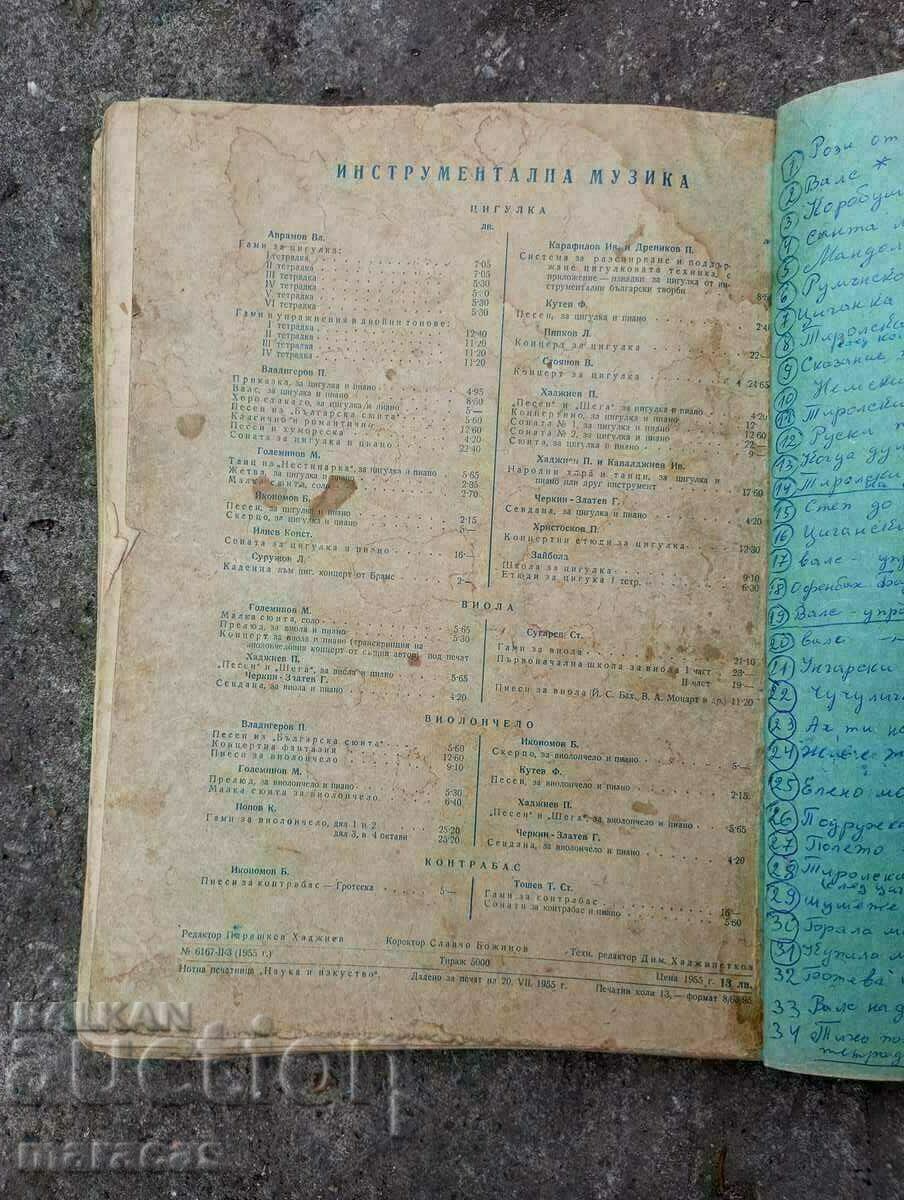 ИНСТРУМЕНТАЛНА МУЗИКА
ЦИГУЛКА
лв.
Аврамов Вл.
Гами за цигулка:
I тетрадка
II тетрадка 7·05
III тетрадка 7·05
IV тетрадка 5·30
V тетрадка
VI тетрадка 5·30
5·30
Гами и упражнения в двойни тонове:
I тетрадка
II тетрадка 12·40
III тетрадка 11·20
IV тетрадка 11·20
11·20
Владигеров П.
Приказка, за цигулка и пиано 4·95
Валс, за цигулка и пиано 8·60
Хоро стакато, за цигулка и пиано 5·—
Песен из „Българска сюита“ 5·60
Класично и романтично 12·60
Песен и хумореска 4·20
Соната за цигулка и пиано 22·40
Големинов М.
Танц из „Нестинарка“, за цигулка и пиано 5·65
Жетва, за цигулка и пиано 2·85
Малка сюита, соло 2·70
Икономов Б.
Песен, за цигулка и пиано 2·15
Скерцо, за цигулка и пиано
Илиев Конст.
Соната за цигулка и пиано 16·—
Суружов Л.
Каденца към циг. концерт от Брамс 2·—
Карафилов Ив. и Дреников П.
Система за разсвирване и поддър-
жане цигулковата техника,
приложение — извадки за цигулка от ин-
струментални български творби
Кутев Ф.
Песен, за цигулка и пиано
Пипков Л.
Концерт за цигулка 22·—
Стоянов В.
Концерт за цигулка 24·65
Хаджиев П.
„Песен“ и „Шега“ за цигулка и пиано 4·20
Концертино, за цигулка и пиано 12·—
Соната № 1 за цигулка и пиано 12·60
Соната № 2, за цигулка и пиано 22·—
Сюита, за цигулка и пиано 9·—
Хаджиев П. и Кавалджиев Ив.
Народни хора и танци, за цигулка и
пиано или друг инструмент 17·60
Черкин-Златев Г.
Севдана, за цигулка и пиано 4·20
Христосков П.
Концертни етюди за цигулка 12·30
Зайболд
Школа за цигулка 9·10
Етюди за цигулка I тетр. 6·30
ВИОЛА
Големинов М.
Малка сюита, соло 5·65
Прелюд, за виола и пиано 5·30
Концерт за виола и пиано (транскрипция на
виолончеловия концерт от същия автор) под печат
Хаджиев П.
„Песен“ и „Шега“, за виола и пиано 5·65
Черкин-Златев Г.
Севдана, за виола и пиано 4·20
Сугарев Ст.
Гами за виола 21·10
Първоначална школа за виола I част 23·—
II част 19·—
Пиеси за виола (Й. С. Бах, В. А. Моцарт и др.) 11·20
ВИОЛОНЧЕЛО
Владигеров П.
Песен из „Българска сюита“ 5·60
Концертна фантазия 12·60
Пиеси за виолончело 9·10
Големинов М.
Прелюд, за виолончело и пиано 5·30
Малка сюита за виолончело 6·40
Попов К.
Гами за виолончело, два 1 и 2 25·20
два 3, в 4 октави 25·20
Икономов Б.
Скерцо, за виолончело и пиано 5·—
Кутев Ф.
Песен, за виолончело и пиано 2·15
Хаджиев П.
„Песен“ и „Шега“, за виолончело и пиано 5·65
Черкин-Златев Г.
Севдана, за виолончело и пиано 4·20
КОНТРАБАС
Икономов Б.
Пиеси за контрабас — Гротеска 5·—
Тошев Т. Ст.
Гами за контрабас 16·—
Сонати за контрабас и пиано 5·60
Редактор Парашкев Хаджиев Коректор Славчо Божинов Техн. редактор Дим. Хаджипетков
№ 6167-II-3 (1955 г.) Тираж 5000 Цена 1955 г. 13 лв.
Нотна печатница „Наука и изкуство“. Дадено за печат на 20. VII. 1955 г. Печатни коли 13,— формат 8/65/95
1 Рози от
2 Валс *
3 Коробуш
4 сюита
5 Мандол
6 Румънско
7 Циганка
8 Тиролска
9 Сказание
10 Немски
11 Тиролски
12 Руска
13 Когда ду
14 Тиролски
15 Степ до
16 Цигански
17 валс - упр
18 Офенбах
19 Валс - упра
20 валс -
21 Унгарски
22 Чучулиг
23 Ах, ти
24 Живе
25 Елено мо
26 Подружк
27 Полето
28 Тиролски
(след циг
29 шумеже
30 Горала
31 Кужила
32
33 Валс на
34 Тихо
тетрад
BALKAN
auction
maracas